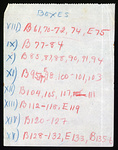 BOXES
VIII) B 61, 70-72, 74, E75
IX) B 77-84
X) B 83, 87, 88, 90, 91, 94
XI) B 98, 100-101, 103
XII) B 104, 105, 107,
XIII) B 112-118, E119
XIV) B 120-127
XV) B 128-132, E133,